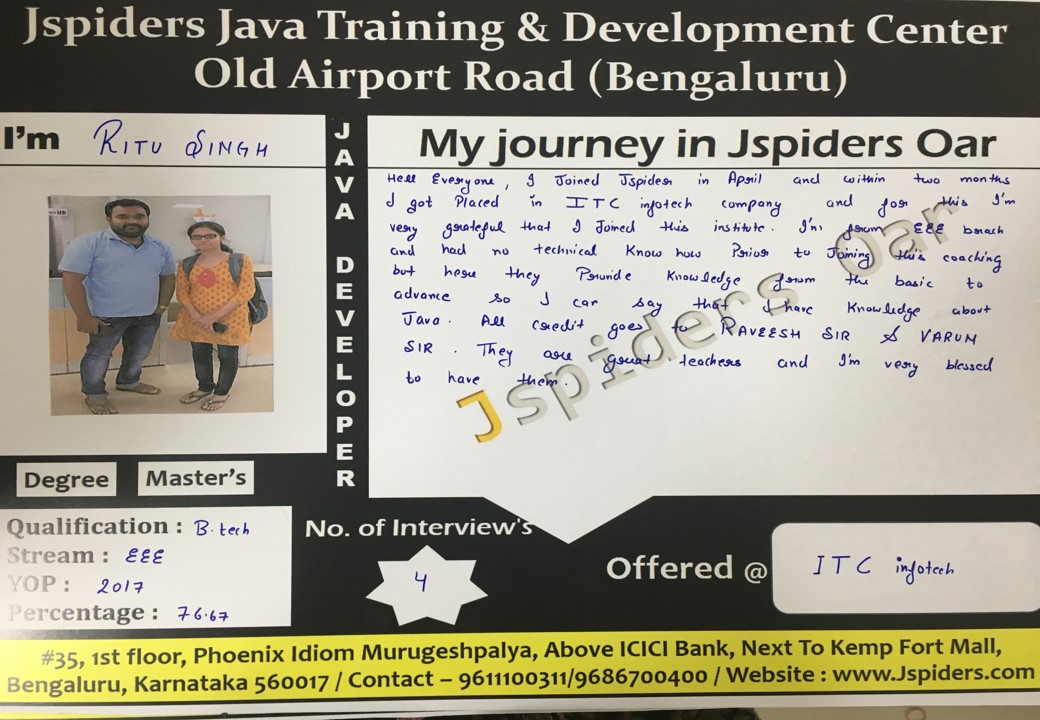 Jspiders Java Training & Development Center
Old Airport Road (Bengaluru)
I'm RITU SINGH
JAVA DEVELOPER
My journey in Jspiders Oar
Hell Everyone, I Joined Jspider in April and within two months
I got Placed in ITC infotech company and for this I'm
very grateful that I Joined this institute. I'm from EEE brach
and had no technical Know how Prior to Joining this coaching
but here they Provide Knowledge from the basic to
advance so I can say that I have Knowledge about
Java. All credit goes to RAVEESH SIR & VARUN
SIR. They are great teachers and I'm very blessed
to have them.
Jspiders Oar
Degree Master's
Qualification : B.tech
Stream : EEE
YOP : 2017
Percentage : 76.67
No. of Interview's
4
Offered @ ITC infotech
#35, 1st floor, Phoenix Idiom Murugeshpalya, Above ICICI Bank, Next To Kemp Fort Mall,
Bengaluru, Karnataka 560017 / Contact – 9611100311/9686700400 / Website : www.Jspiders.com